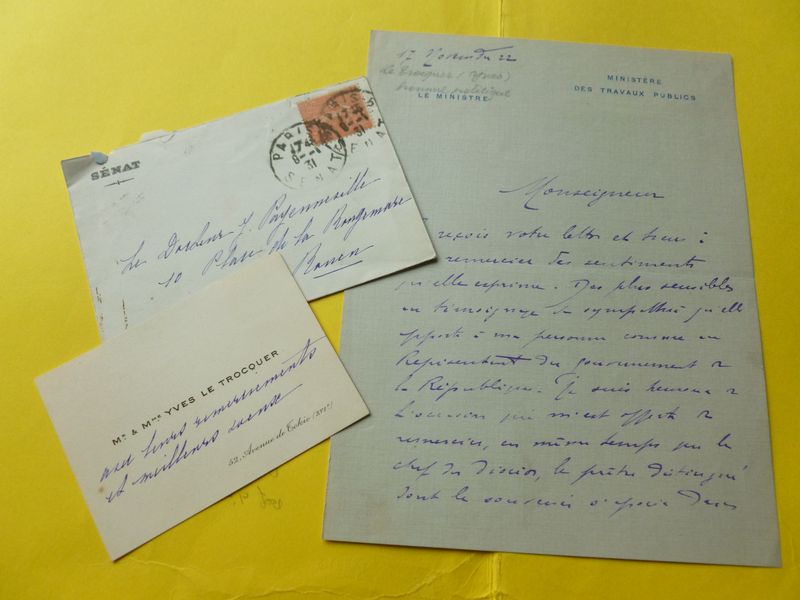 SÉNAT
PARIS
SÉNAT
Le Docteur J. Payenneville
10 Place de la Rougemare
Rouen
Mr & Mme YVES LE TROCQUER
avec leurs remerciements
et meilleurs voeux
52, Avenue de Tokio (XVIe)
17 Novembre 22
Le Trocquer (Yves)
homme politique
LE MINISTRE
MINISTÈRE
DES TRAVAUX PUBLICS
Monseigneur
reçois votre lettre et tiens à
remercier des sentiments
qu'elle exprime. Des plus sensibles
au témoignage de sympathie qu'elle
apporte à ma personne comme au
Représentant du gouvernement de
la République. Je suis heureux de
l'occasion qui m'est offerte de
remercier, en même temps que le
chef du Diocèse, le prêtre distingué
dont le souvenir s'associe dans